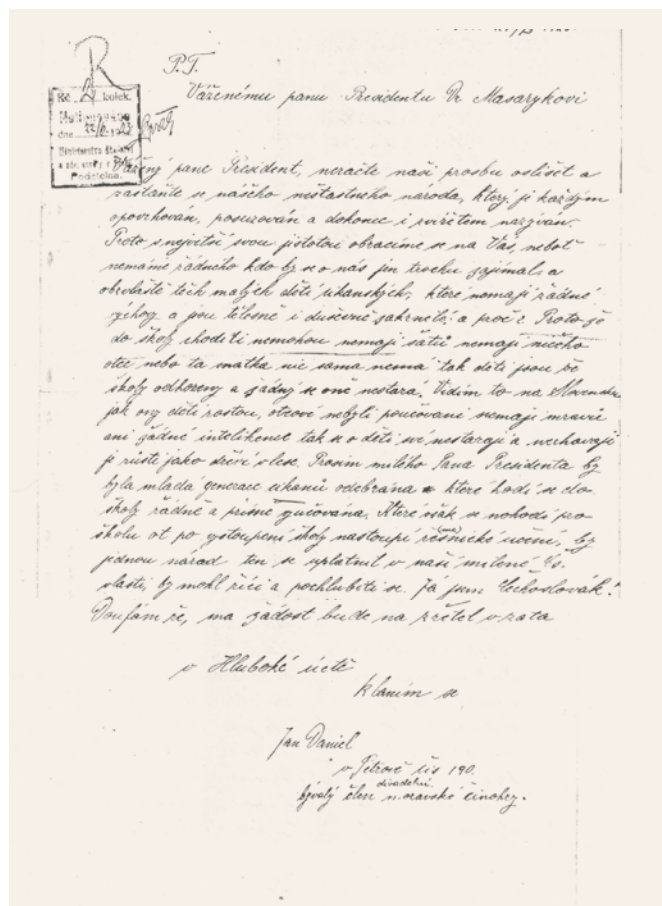 R
P.T.
Váženému panu Presidentu Dr Masarykovi
Kč 2 kolek.
dne 22/6. 1923
Ministerstva školství
Podatelna.
Vážený pane President, neračte naši prosbu oslišet a
zastaňte se nášeho neštastneho národa, který je každým
opovrhován, posuzován a dokonce i zvířetem nazýván.
Proto s největší svou jistotou obracíme se na Vás, neboť
nemáme řádného kdo by se o nás jen trochu zajímal, a
obvláště těch malých děti cikanských, které nemají žádné
a jsou tělesně i duševně zakrnělé: a proč? Proto že
do školy choditi nemohou nemají šatů nemají ničeho
otec nebo ta matka nic sama nemá tak děti jsou ze
školy odhozeny a žádný se oně nestará. Vidím to na Slovensku
jak ony děti rostou, otcové nebyli poučovani nemají mravů
ani žádné inteligence tak se o děti své nestarají a nechávají
je růsti jako dřevi v lese. Prosim milého Pana Presidenta by
byla mladá generace cikanů odebrána a které hodí se do
školy řádně a přísně vyučována. Které však se nehodí pro
školu ať po vystoupení školy nastoupí řemeslnické učení, by
jednou národ ten se uplatnil v naší milené Čs.
vlasti, by mohl říci a pochlubiti se. Já jsem Čechoslovák."
Doufám že, ma žádost bude na zřetel vzata
v Hluboké úctě
klaním se
Jan Daniel
v Petrově čís 190.
divadelní
bývalý člen moravské činohry.